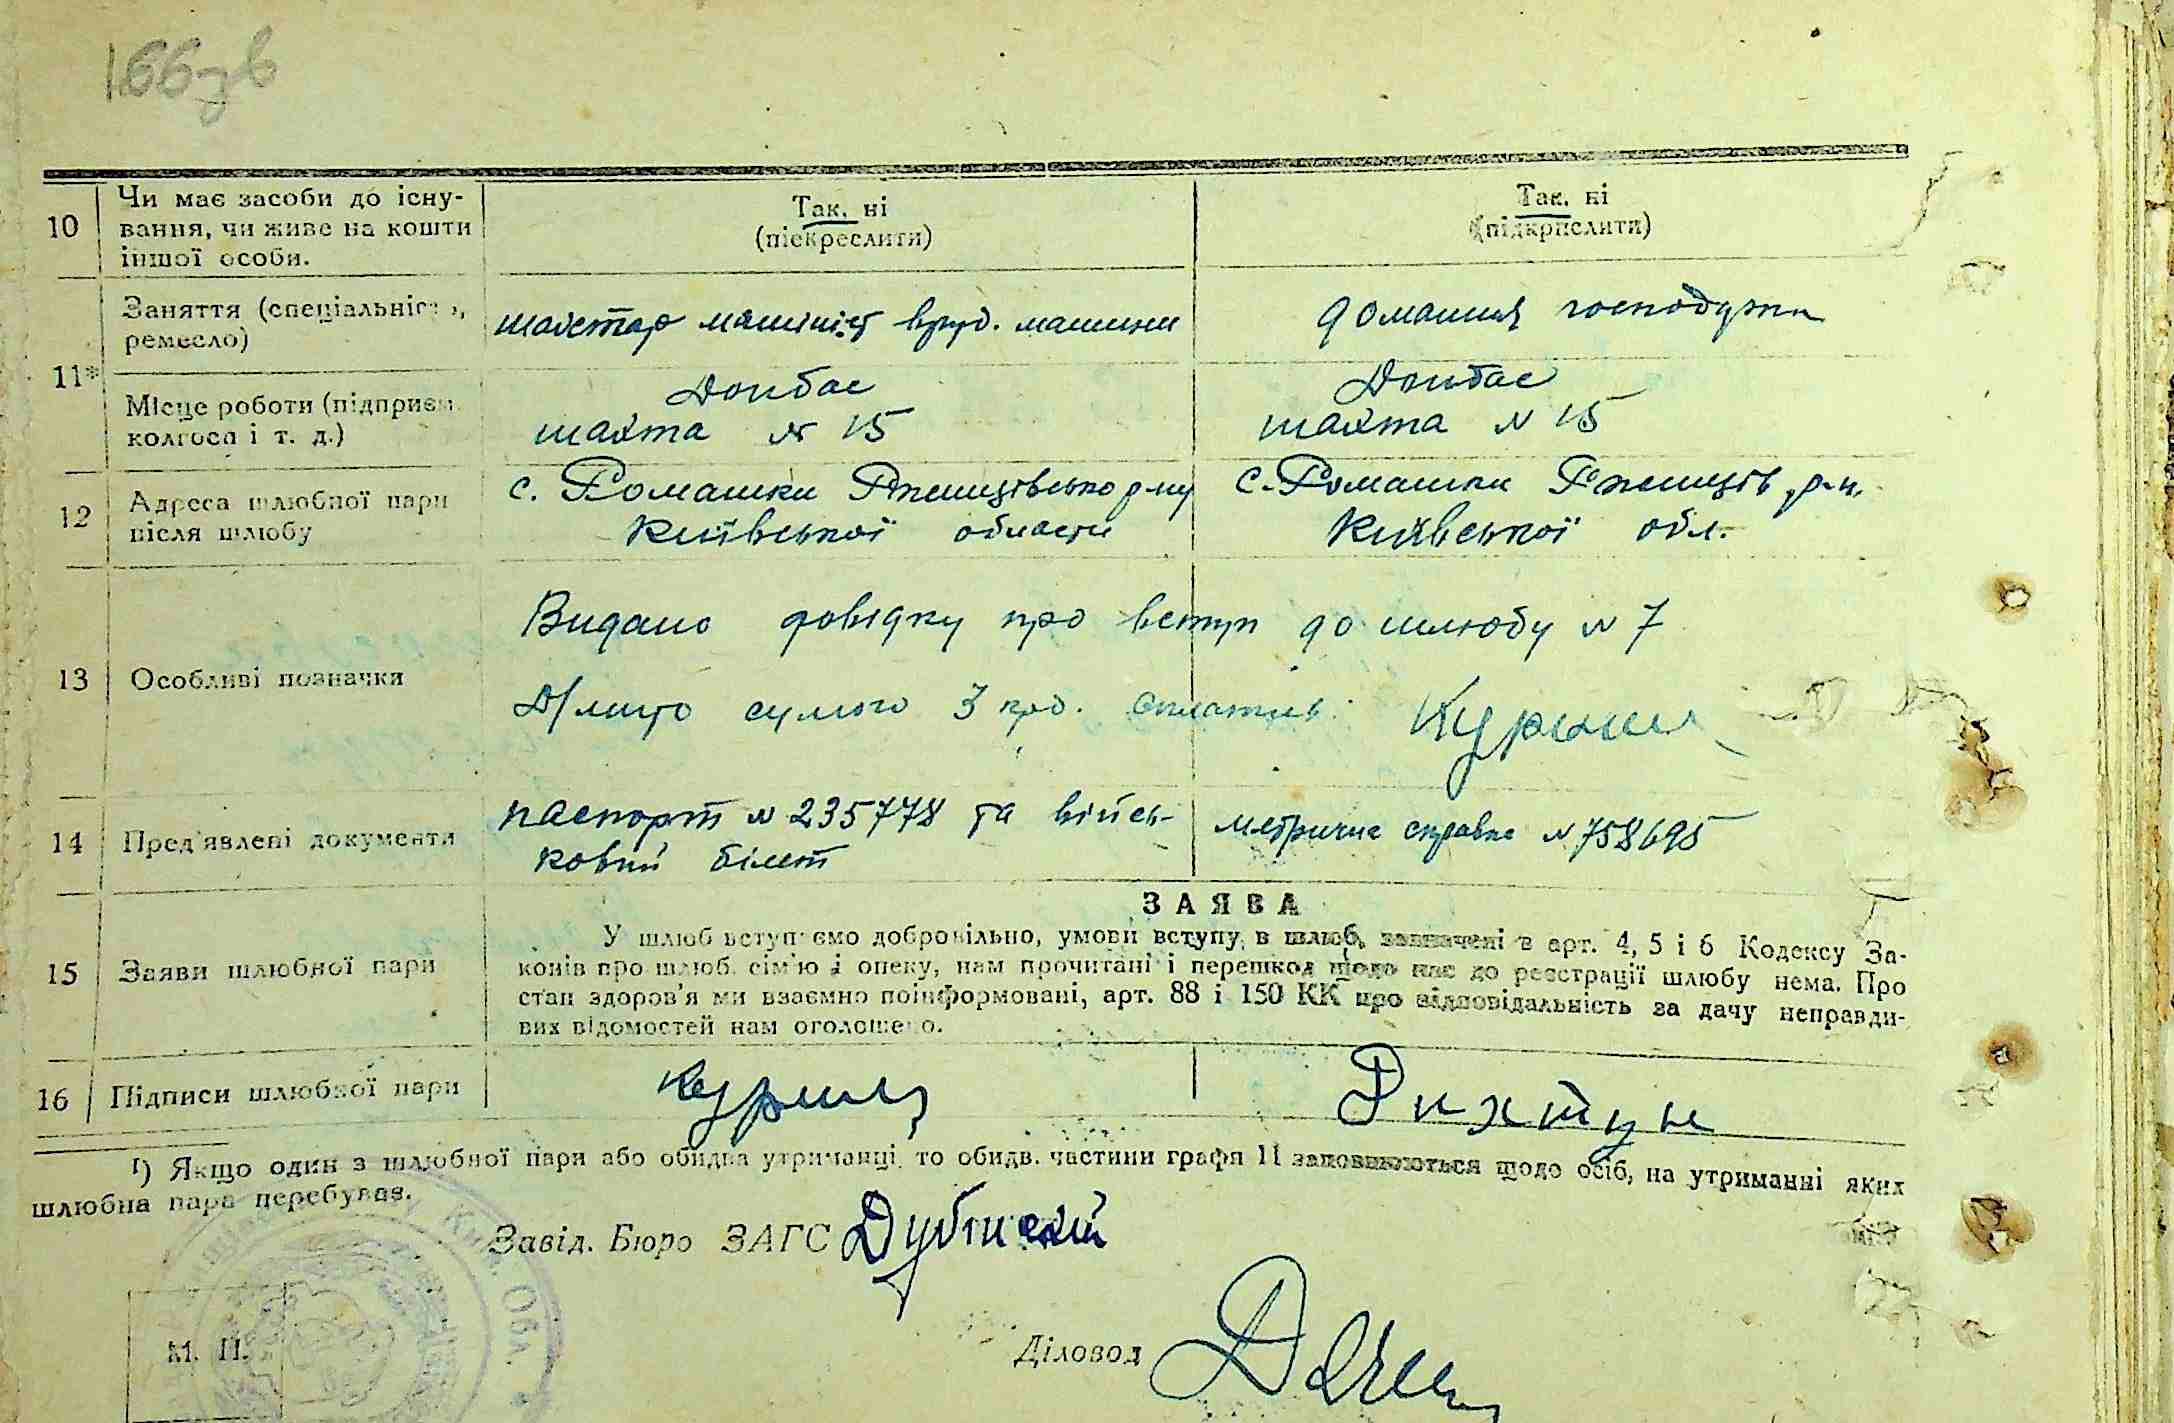 166зв
10
Чи має засоби до існу-
вання, чи живе на кошти
іншої особи.
Так, ні
(піекреслити)
Так, ні
(підкрислити)
11*
Заняття (спеціальність,
ремесло)
шахтар машиніст вруб. машини
домашня господарка
Місце роботи (підприєм.
колгосп і т. д.)
Донбас
шахта № 15
Донбас
шахта № 15
12
Адреса шлюбної пари
після шлюбу
с. Ромашки Ржищівсько р-ну
Київської области
с. Ромашки Ржищів. р-н.
Київської обл.
13
Особливі позначки
Видано довідку про вступ до шлюбу № 7
сумою 3 крб. сплатив.
14
Пред'явлені документи
паспорт № 235778 та війсь-
ковий білет
метрична справка № 758695
15
Заяви шлюбної пари
ЗАЯВА
У шлюб вступаємо добровільно, умови вступу, в шлюб, зазначені в арт. 4, 5 і 6 Кодексу За-
конів про шлюб, сім'ю і опеку, нам прочитані і перешкод щодо нас до реєстрації шлюбу нема. Про
стан здоров'я ми взаємно поінформовані, арт. 88 і 150 КК про відповідальність за дачу неправди-
вих відомостей нам оголошено.
16
Підписи шлюбної пари
Рихтун
¹) Якщо один з шлюбної пари або обидва утриманці, то обидв. частини графи 11 заповнюються щодо осіб, на утриманні яких
шлюбна пара перебуває.
Завід. Бюро ЗАГС
Київ. Обл.
М. П.
Діловод